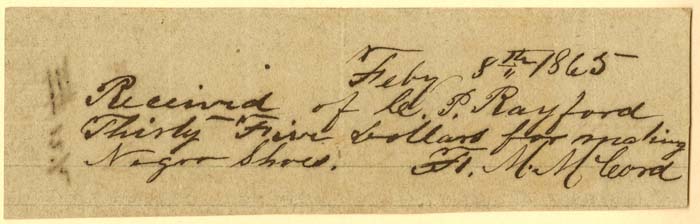 Feby 8th 1865
Received of C. P. Rayford
Thirty Five Dollars for making
Negro Shoes. F. M. McCord